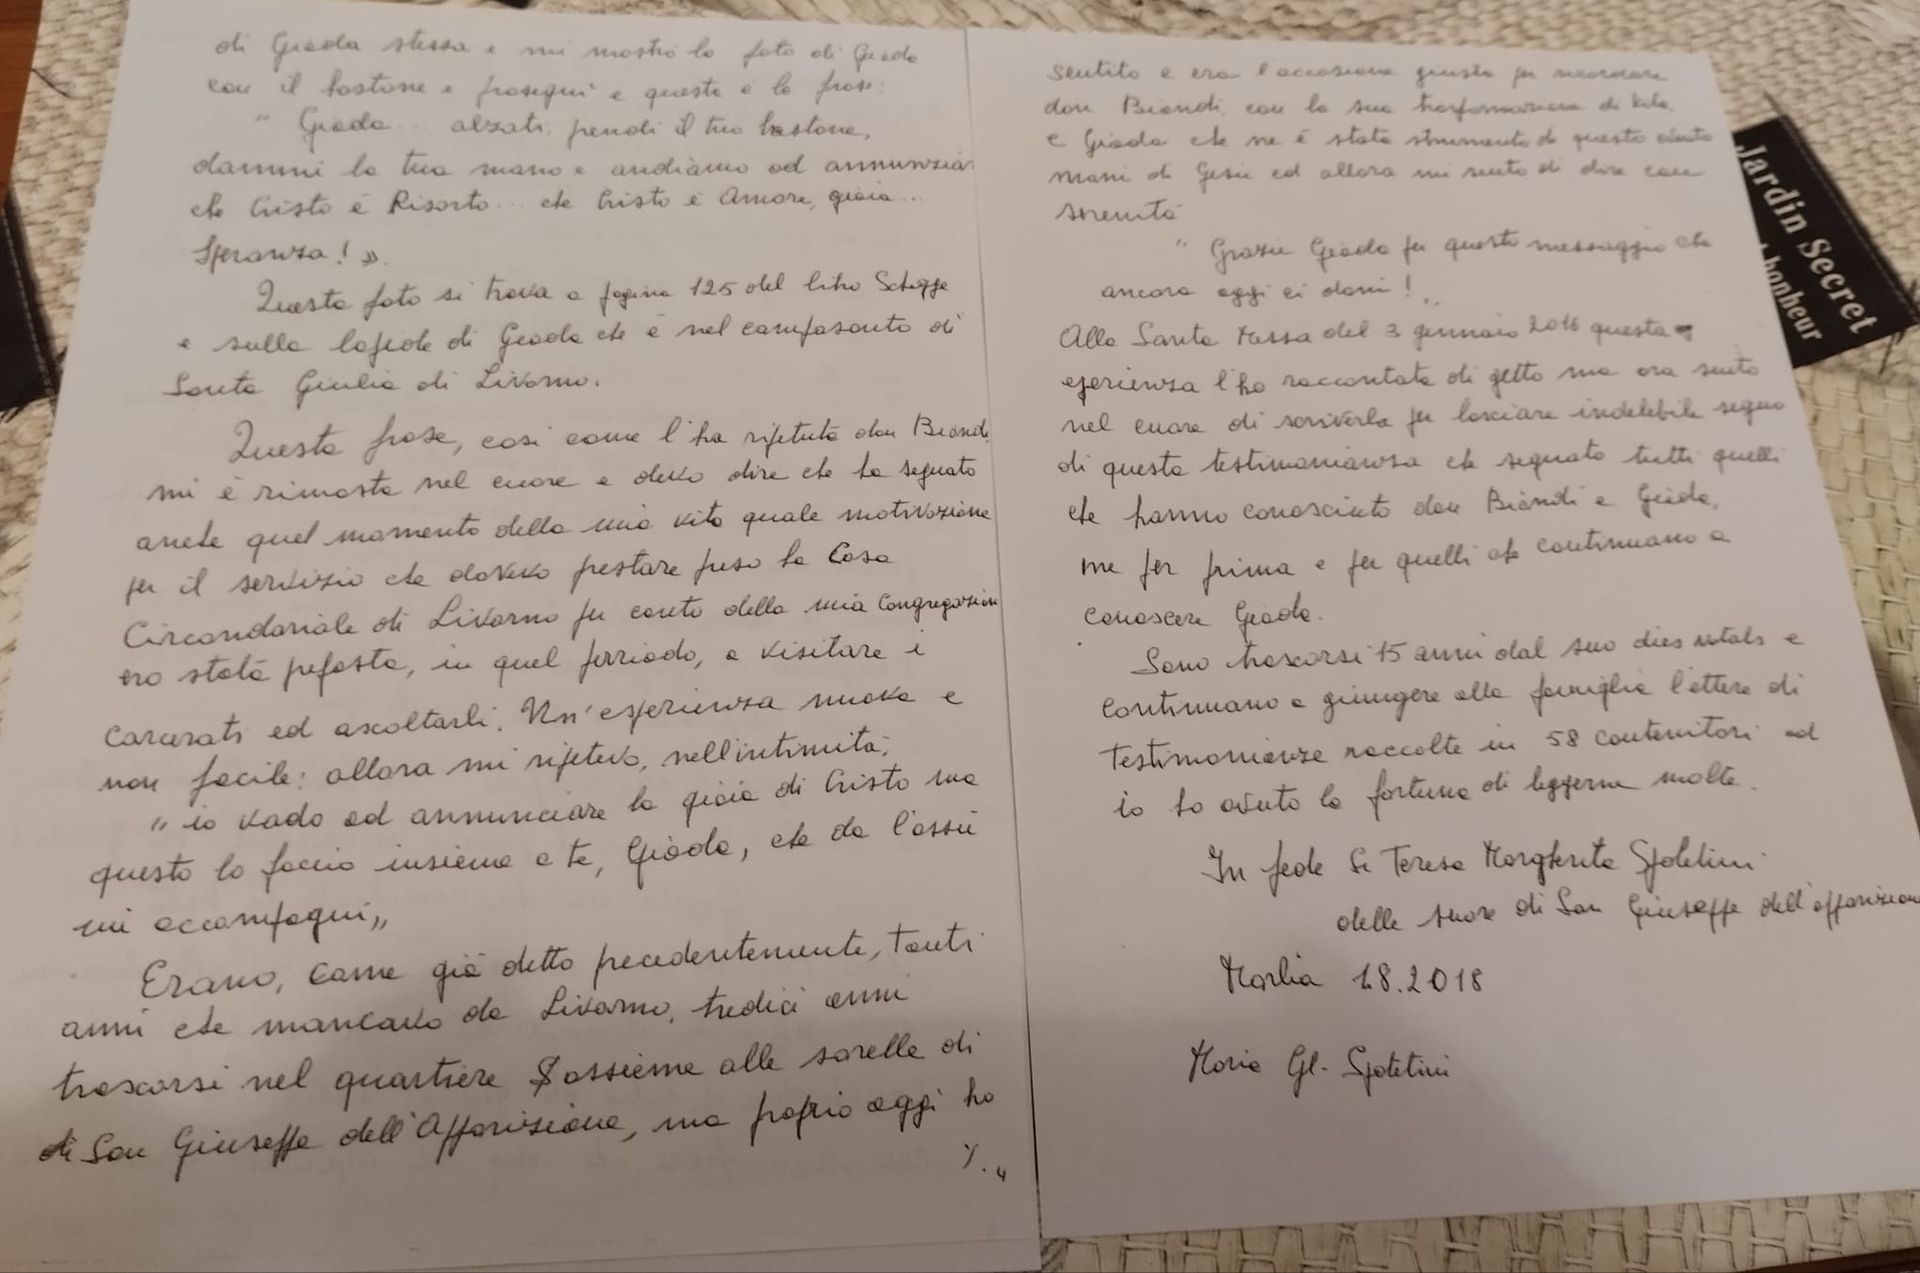 di Giada stessa e mi mostrò la foto di Giada
con il bastone e proseguì e questa è la frase:
" Giada... alzati, prendi il tuo bastone,
dammi la tua mano e andiamo ad annunzia
che Cristo è Risorto... che Cristo è Amore, gioia...
Speranza! ».
Questa foto si trova a pagina 125 del libro Schegge
e sulla lapide di Giada che è nel camposanto di
Santa Giulia di Livorno.
Questa frase, così come l'ha ripetuta don Biondi
mi è rimasta nel cuore e devo dire che ha segnato
anche quel momento della mia vita quale motivazione
per il servizio che dovevo prestare preso la Casa
Circondariale di Livorno per conto della mia Congregazione
ero stata preposta, in quel periodo, a visitare i
carcerati ed ascoltarli. Un'esperienza nuova e
non facile: allora mi ripetevo, nell'intimità:
" io vado ad annunciare la gioia di Cristo ma
questo lo faccio insieme a te, Giada, che da lassù
mi accompagni"
Erano, come già detto precedentemente, tanti
anni che mancavo da Livorno, tredici anni
trascorsi nel quartiere assieme alle sorelle di
di San Giuseppe dell'Apparizione, ma proprio oggi ho
4
sentito e era l'occasione giusta per ricordare
don Biondi, con la sua trasformazione di vita,
e Giada che ne è stata strumento di questo
mani di Gesù ed allora mi sento di dire con
serenità
" Grazie Giada per questo messaggio che
ancora oggi ci doni! "
Alla Santa Messa del 3 gennaio 2016 questa
esperienza l'ho raccontata di getto ma ora sento
nel cuore di scriverla per lasciare indelebile segno
di questa testimonianza che segnato tutti quelli
che hanno conosciuto don Biondi e Giada,
me per prima e per quelli che continuano a
conoscere Giada.
Sono trascorsi 15 anni dal suo dies natalis e
continuano a giungere alla famiglia lettere di
testimonianze raccolte in 58 contenitori ed
io ho avuto la fortuna di leggerne molte.
In fede Sr Teresa Margherita Spoletini
delle suore di San Giuseppe dell'apparizione
Marlia 1.8.2018
Maria Gl. Spoletini
Jardin Secret
bonheur